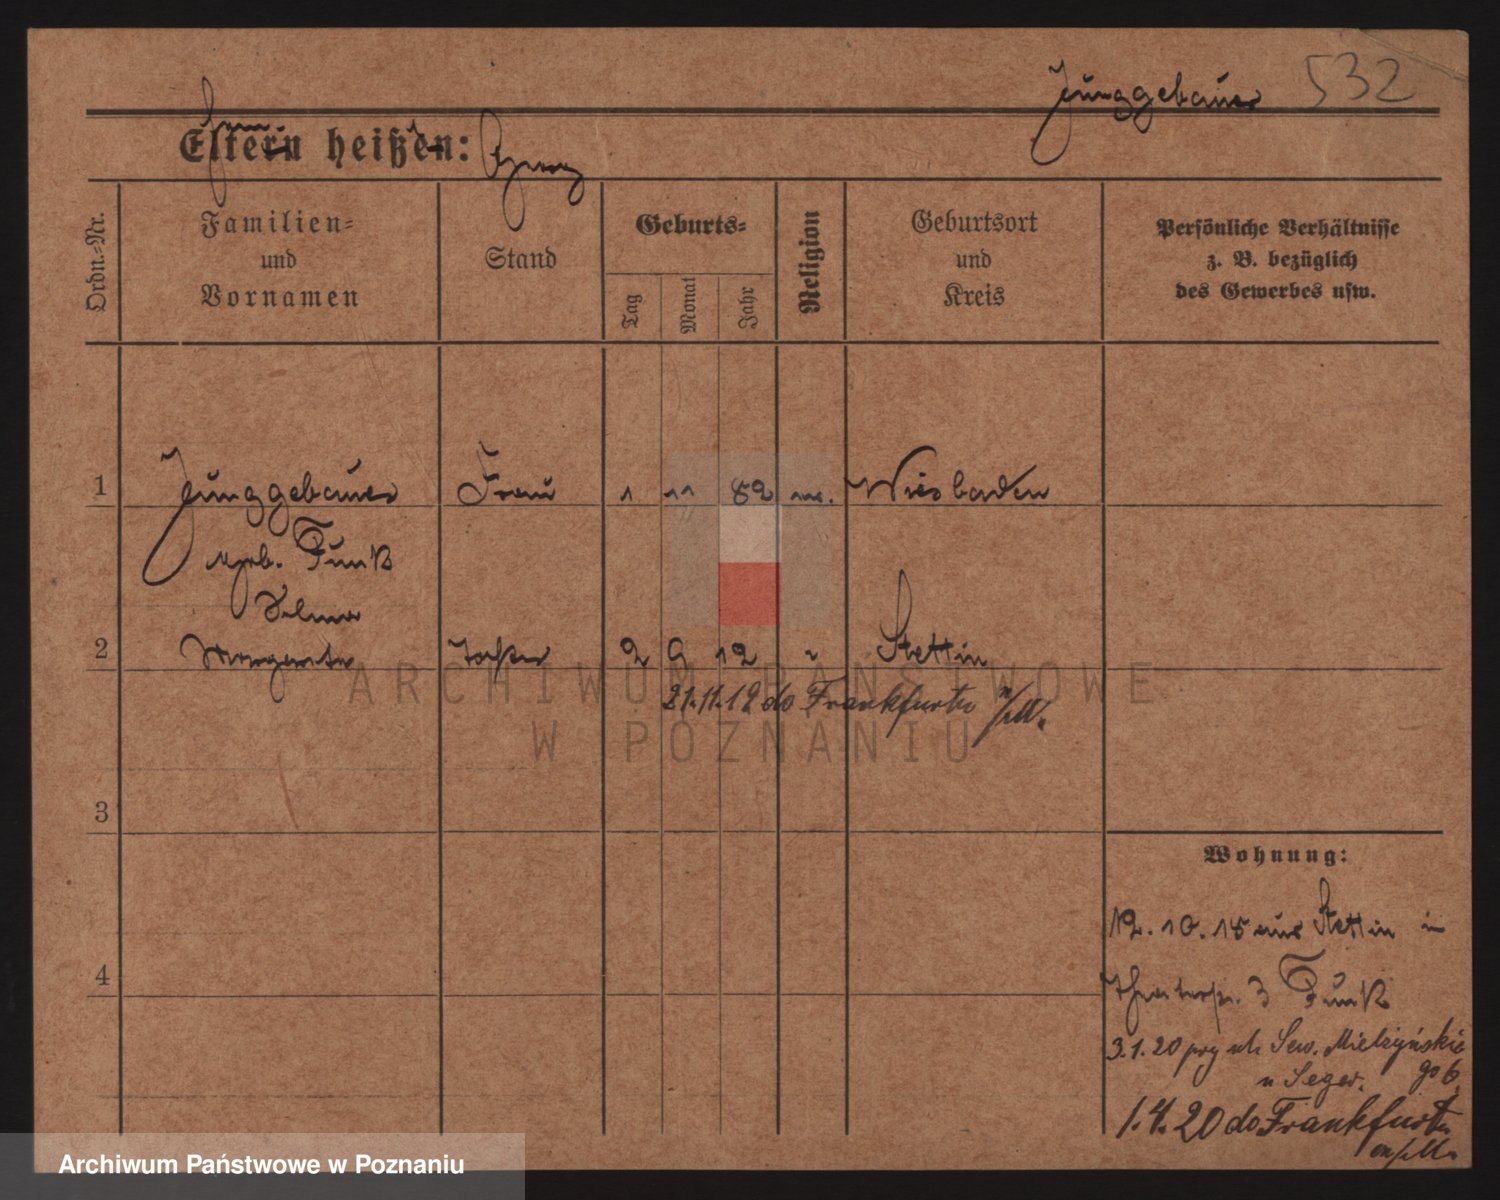 Junggebauer 532
Eltern heißen: Georg
Ordn.-Nr.
Familien-
und
Vornamen
Stand
Geburts-
Tag
Monat
Jahr
Religion
Geburtsort
und
Kreis
Persönliche Verhältnisse
z. B. bezüglich
des Gewerbes usw.
1 Junggebauer Frau 1 11 82 Wiesbaden
geb. Funk
Selma
2 Margarete Tochter 2 9 12 " Stettin
21.11.19 do Frankfurtu n/M.
ARCHIWUM PAŃSTWOWE
W POZNANIU
3
Wohnung:
12.10.15 aus Stettin in
Theaterstr. 3 Funk
4
3.1.20 przy ul. Sew. Mielżyńskiego 6
u Seger.
1.4.20 do Frankfurtu
n/M.
Archiwum Państwowe w Poznaniu